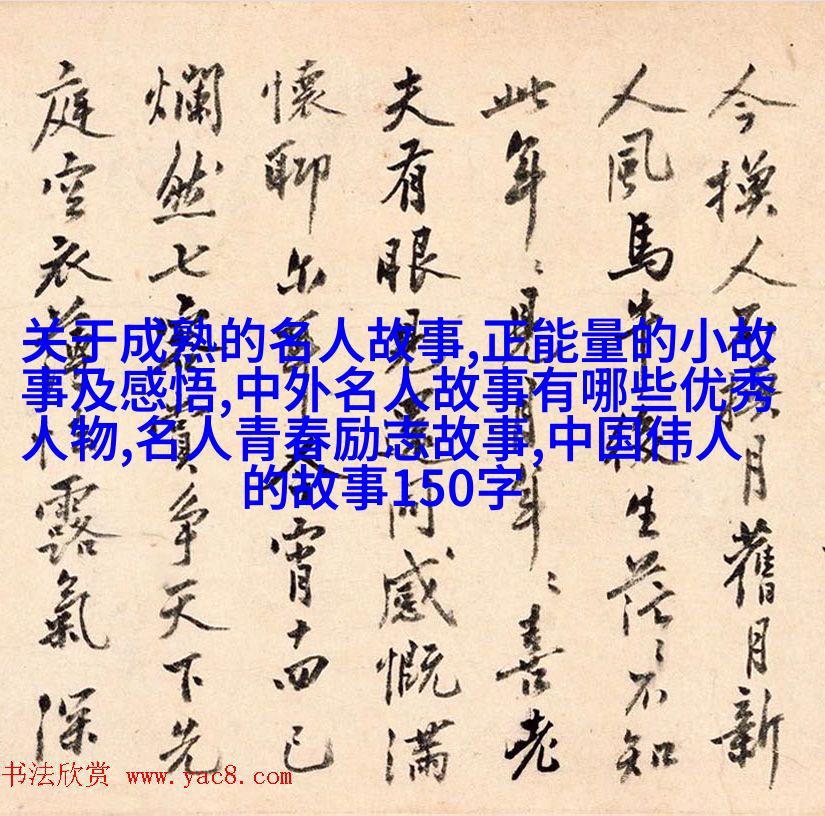 今換人換月舊月新
人風馬牛生茫〻不知
此年〻見月年〻喜老
夫有眼見還同感慨滿
懷聊尔今宵十四已
爛然七寶爭天下先
庭空衣薄露氣深
关于成熟的名人故事,正能量的小故
事及感悟,中外名人故事有哪些优秀
人物,名人青春励志故事,中国伟人
的故事150字
书法欣赏 www.yac8.com